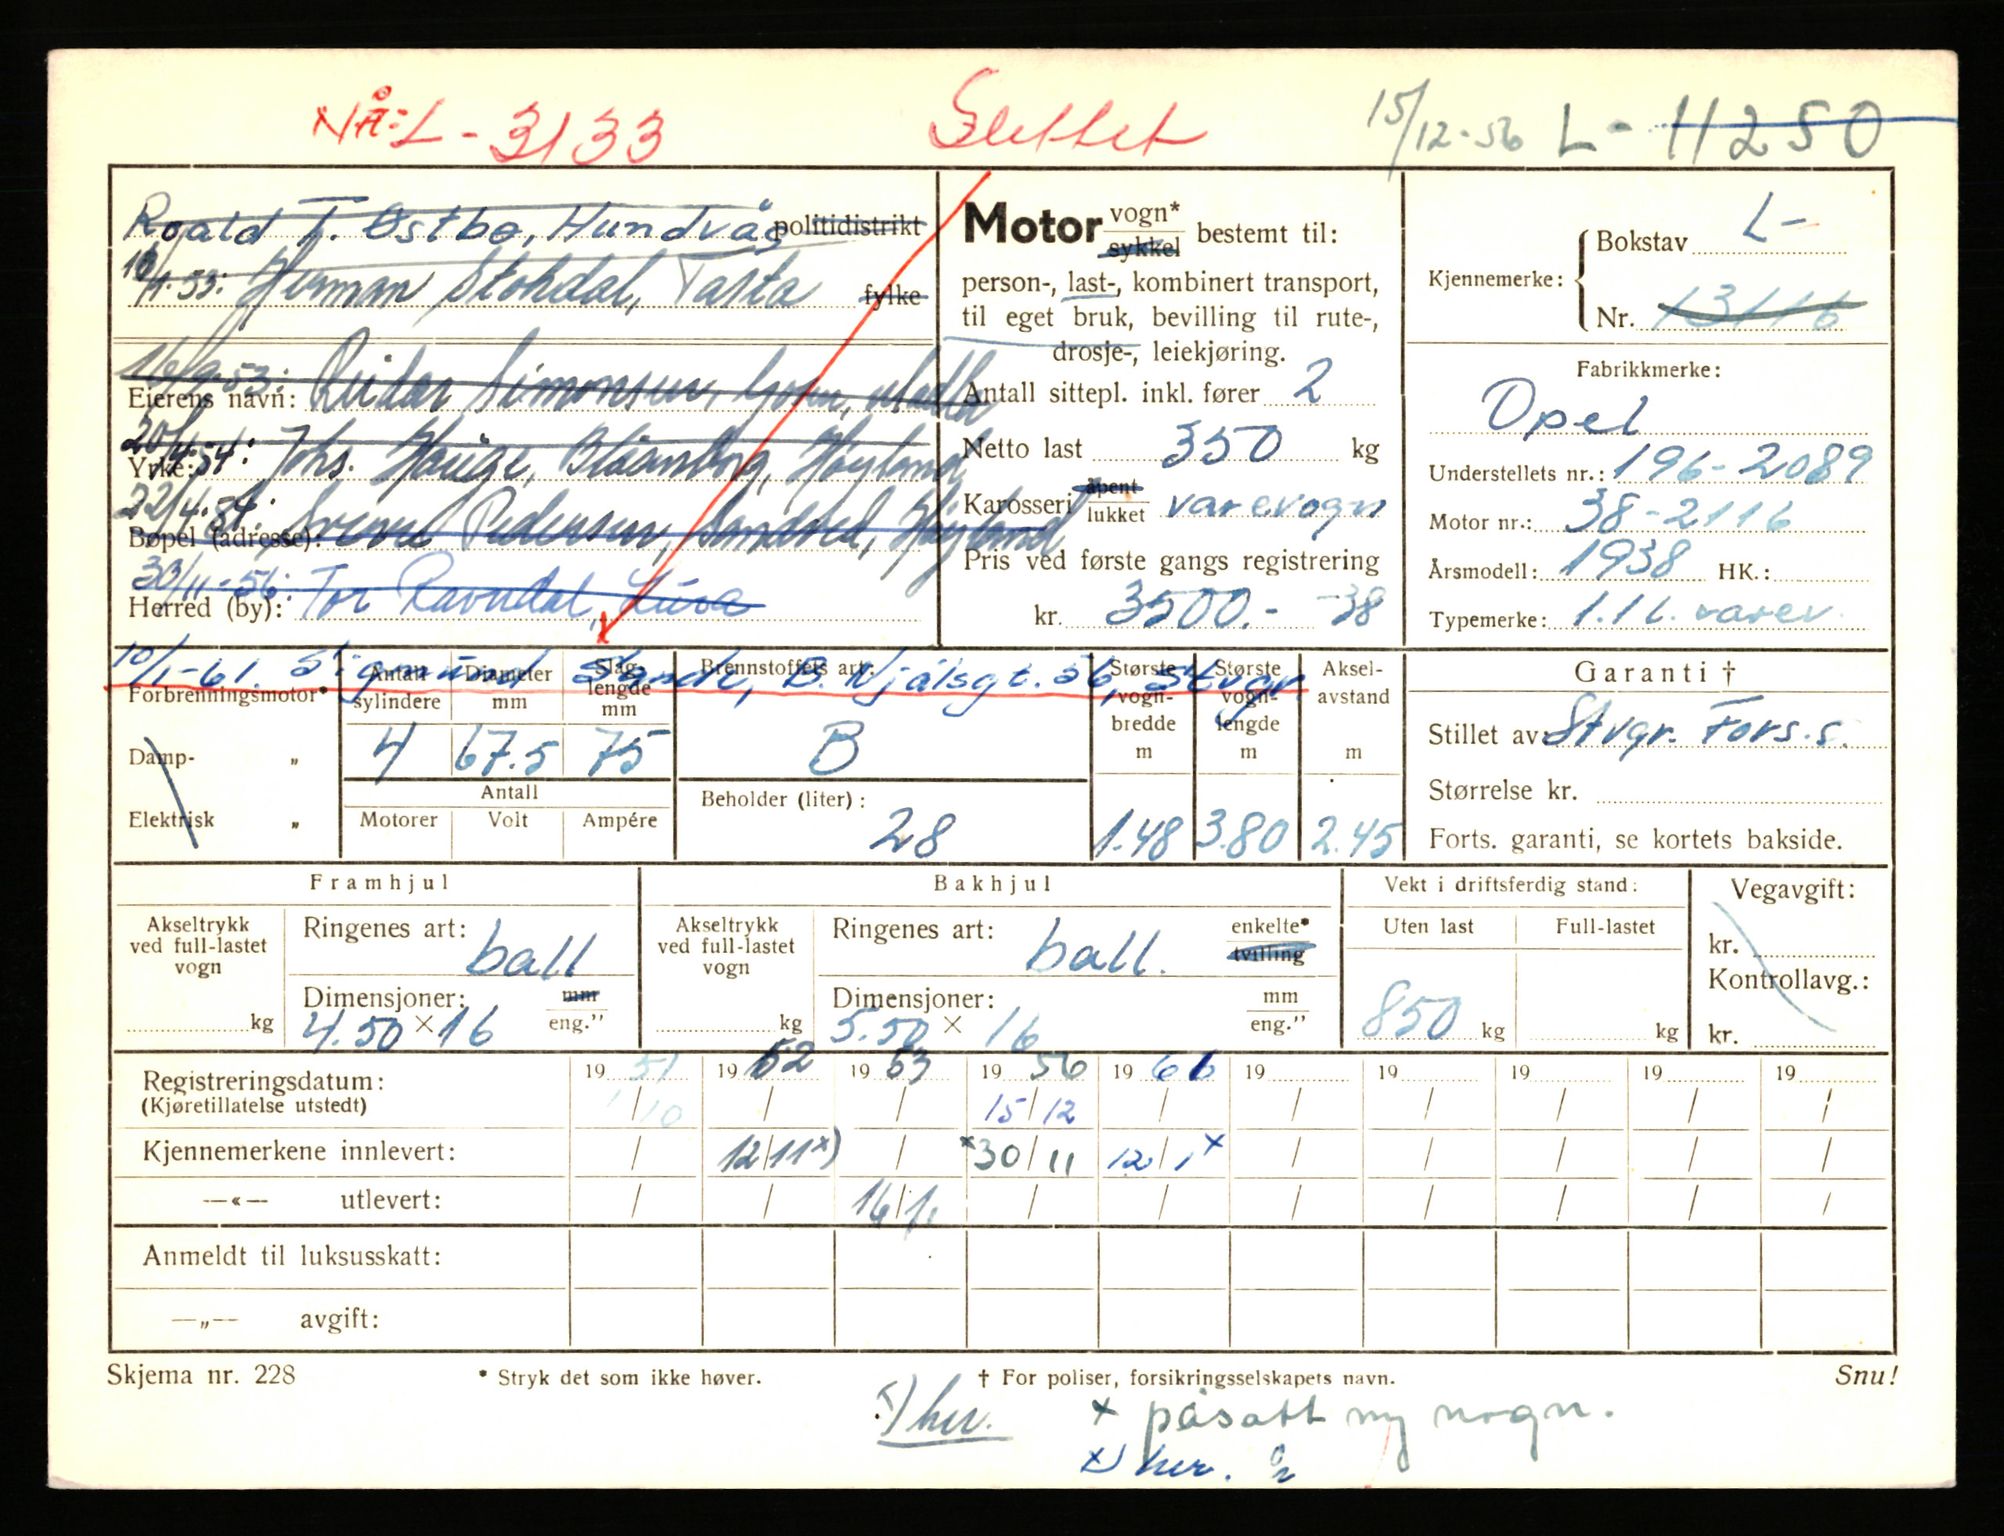 NÅ: L - 3133 Slettet 15/12-56 L - 11250
Roald T. Østbø, Hundvåg politidistrikt
Herman Stokdal, Tasta fylke
16/9-53: Reidar Simonsen,
Eierens navn:
20/4.54: Johs. Hauge, Høyland
Yrke:
22/4.54. Sverre Pedersen, Sandved, Høyland
Bopel (adresse):
30/11-56: Tor Ravndal, Lura
Herred (by):
10/1-61. Sigmund Lande, B. Njålsgt. 56, Stvgr
Motor vogn* sykkel bestemt til:
person-, last-, kombinert transport,
til eget bruk, bevilling til rute-,
drosje-, leiekjøring.
Antall sittepl. inkl. fører 2
Netto last 350 kg
Karosseri åpent lukket varevogn
Pris ved første gangs registrering
kr. 3500.- -38
Kjennemerke: Bokstav L-
Nr. 13116
Fabrikkmerke:
Opel
Understellets nr.: 196-2089
Motor nr.: 38-2116
Årsmodell: 1938 HK.:
Typemerke: 1.1 l. varev.
Forbrenningsmotor*
Damp- „
Elektrisk „
Antall sylindere 4
Diameter mm 67.5
Slaglengde mm 75
Antall
Motorer Volt Ampére
Brennstoffets art: B
Beholder (liter): 28
Største vognbredde m 1.48
Største vognlengde m 3.80
Akselavstand m 2.45
Garanti †
Stillet av: Stvgr. Fors.s.
Størrelse kr.
Forts. garanti, se kortets bakside.
Framhjul
Akseltrykk ved full-lastet vogn kg
Ringenes art: ball
Dimensjoner: mm
4.50 × 16 eng."
Bakhjul
Akseltrykk ved full-lastet vogn kg
Ringenes art: ball. enkelte* tvilling
Dimensjoner: mm
5.50 × 16 eng."
Vekt i driftsferdig stand:
Uten last Full-lastet
850 kg kg
Vegavgift:
kr.
Kontrollavg.:
kr.
Registreringsdatum: 19 51 19 52 19 53 19 56 19 61 19 19 19 19 19
(Kjøretillatelse utstedt) 1/10 / / 15/12 / / / / / /
Kjennemerkene innlevert: / 12/11 x) / x 30/11 12/1 x / / / / /
—«— utlevert: / / 16/1 / / / / / / /
Anmeldt til luksusskatt:
—„— avgift:
Skjema nr. 228 * Stryk det som ikke høver. † For poliser, forsikringsselskapets navn. Snu!
x) her. x påsatt ny vogn.
x) her.